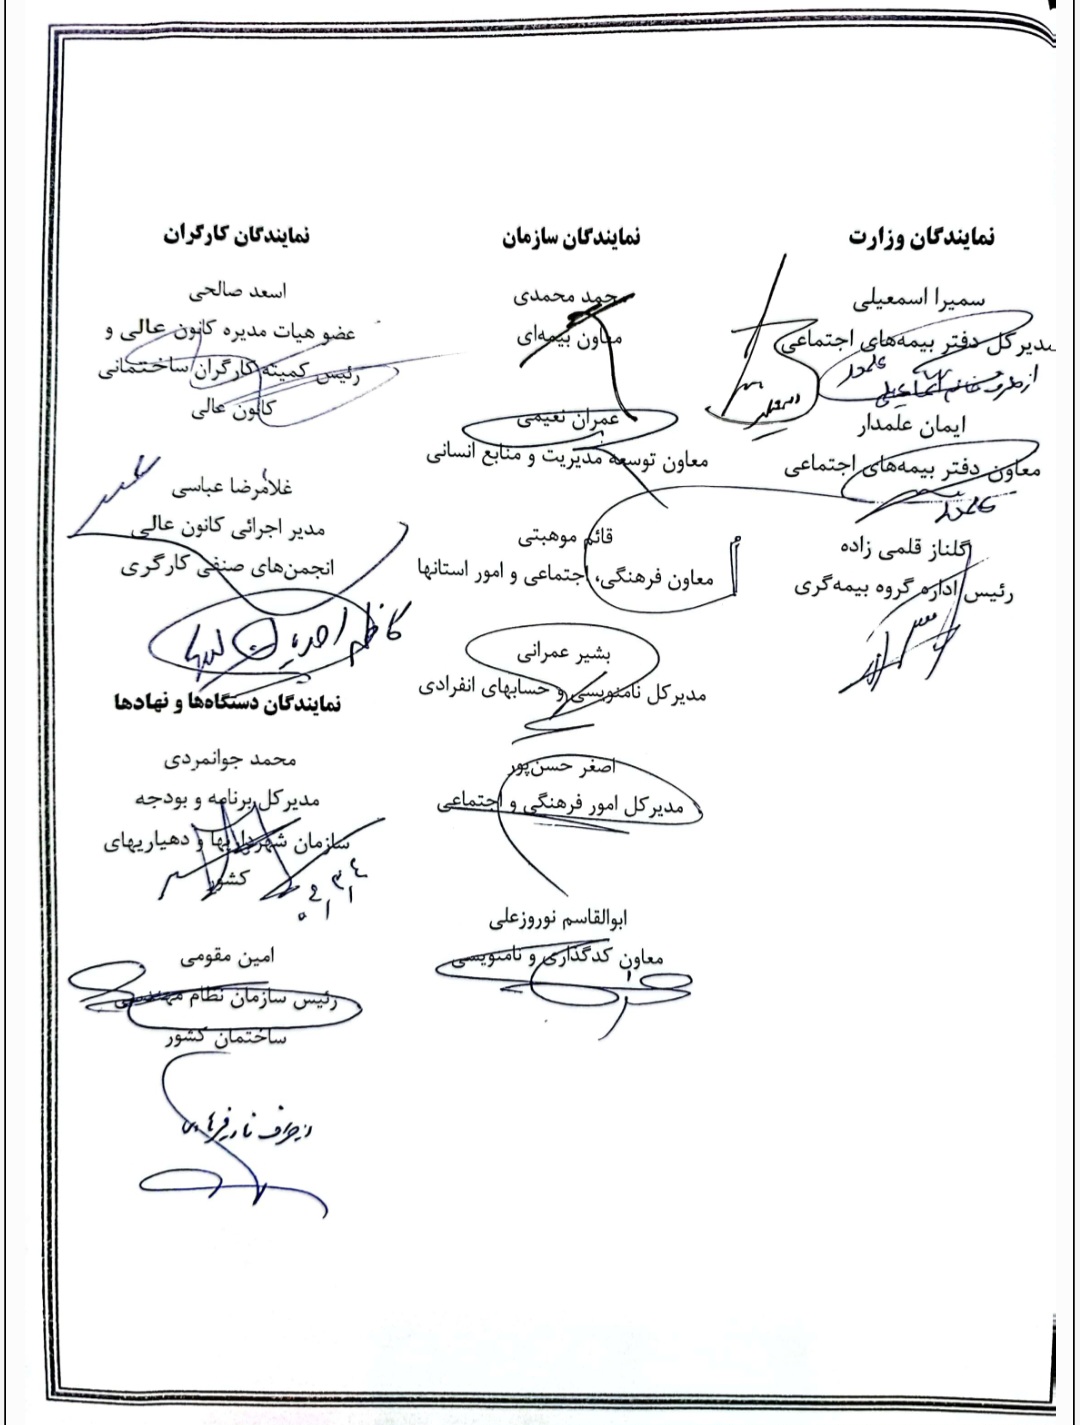 نمایندگان وزارت
سمیرا اسمعیلی
مدیرکل دفتر بیمه‌های اجتماعی
از طرف خانم اسماعیلی
ایمان علمدار
معاون دفتر بیمه‌های اجتماعی
گلناز قلمی زاده
رئیس اداره گروه بیمه‌گری
نمایندگان سازمان
محمد محمدی
معاون بیمه‌ای
عمران نعیمی
معاون توسعه مدیریت و منابع انسانی
قائم موهبتی
معاون فرهنگی، اجتماعی و امور استانها
بشیر عمرانی
مدیرکل نامنویسی و حسابهای انفرادی
اصغر حسن‌پور
مدیرکل امور فرهنگی و اجتماعی
ابوالقاسم نوروزعلی
معاون کدگذاری و نامنویسی
نمایندگان کارگران
اسعد صالحی
عضو هیات مدیره کانون عالی و
رئیس کمیته کارگران ساختمانی
کانون عالی
غلامرضا عباسی
مدیر اجرائی کانون عالی
انجمن‌های صنفی کارگری
کاظم
نمایندگان دستگاه‌ها و نهادها
محمد جوانمردی
مدیرکل برنامه و بودجه
سازمان شهرداریها و دهیاریهای
کشور
امین مقومی
رئیس سازمان نظام مهندسی
ساختمان کشور
از طرف